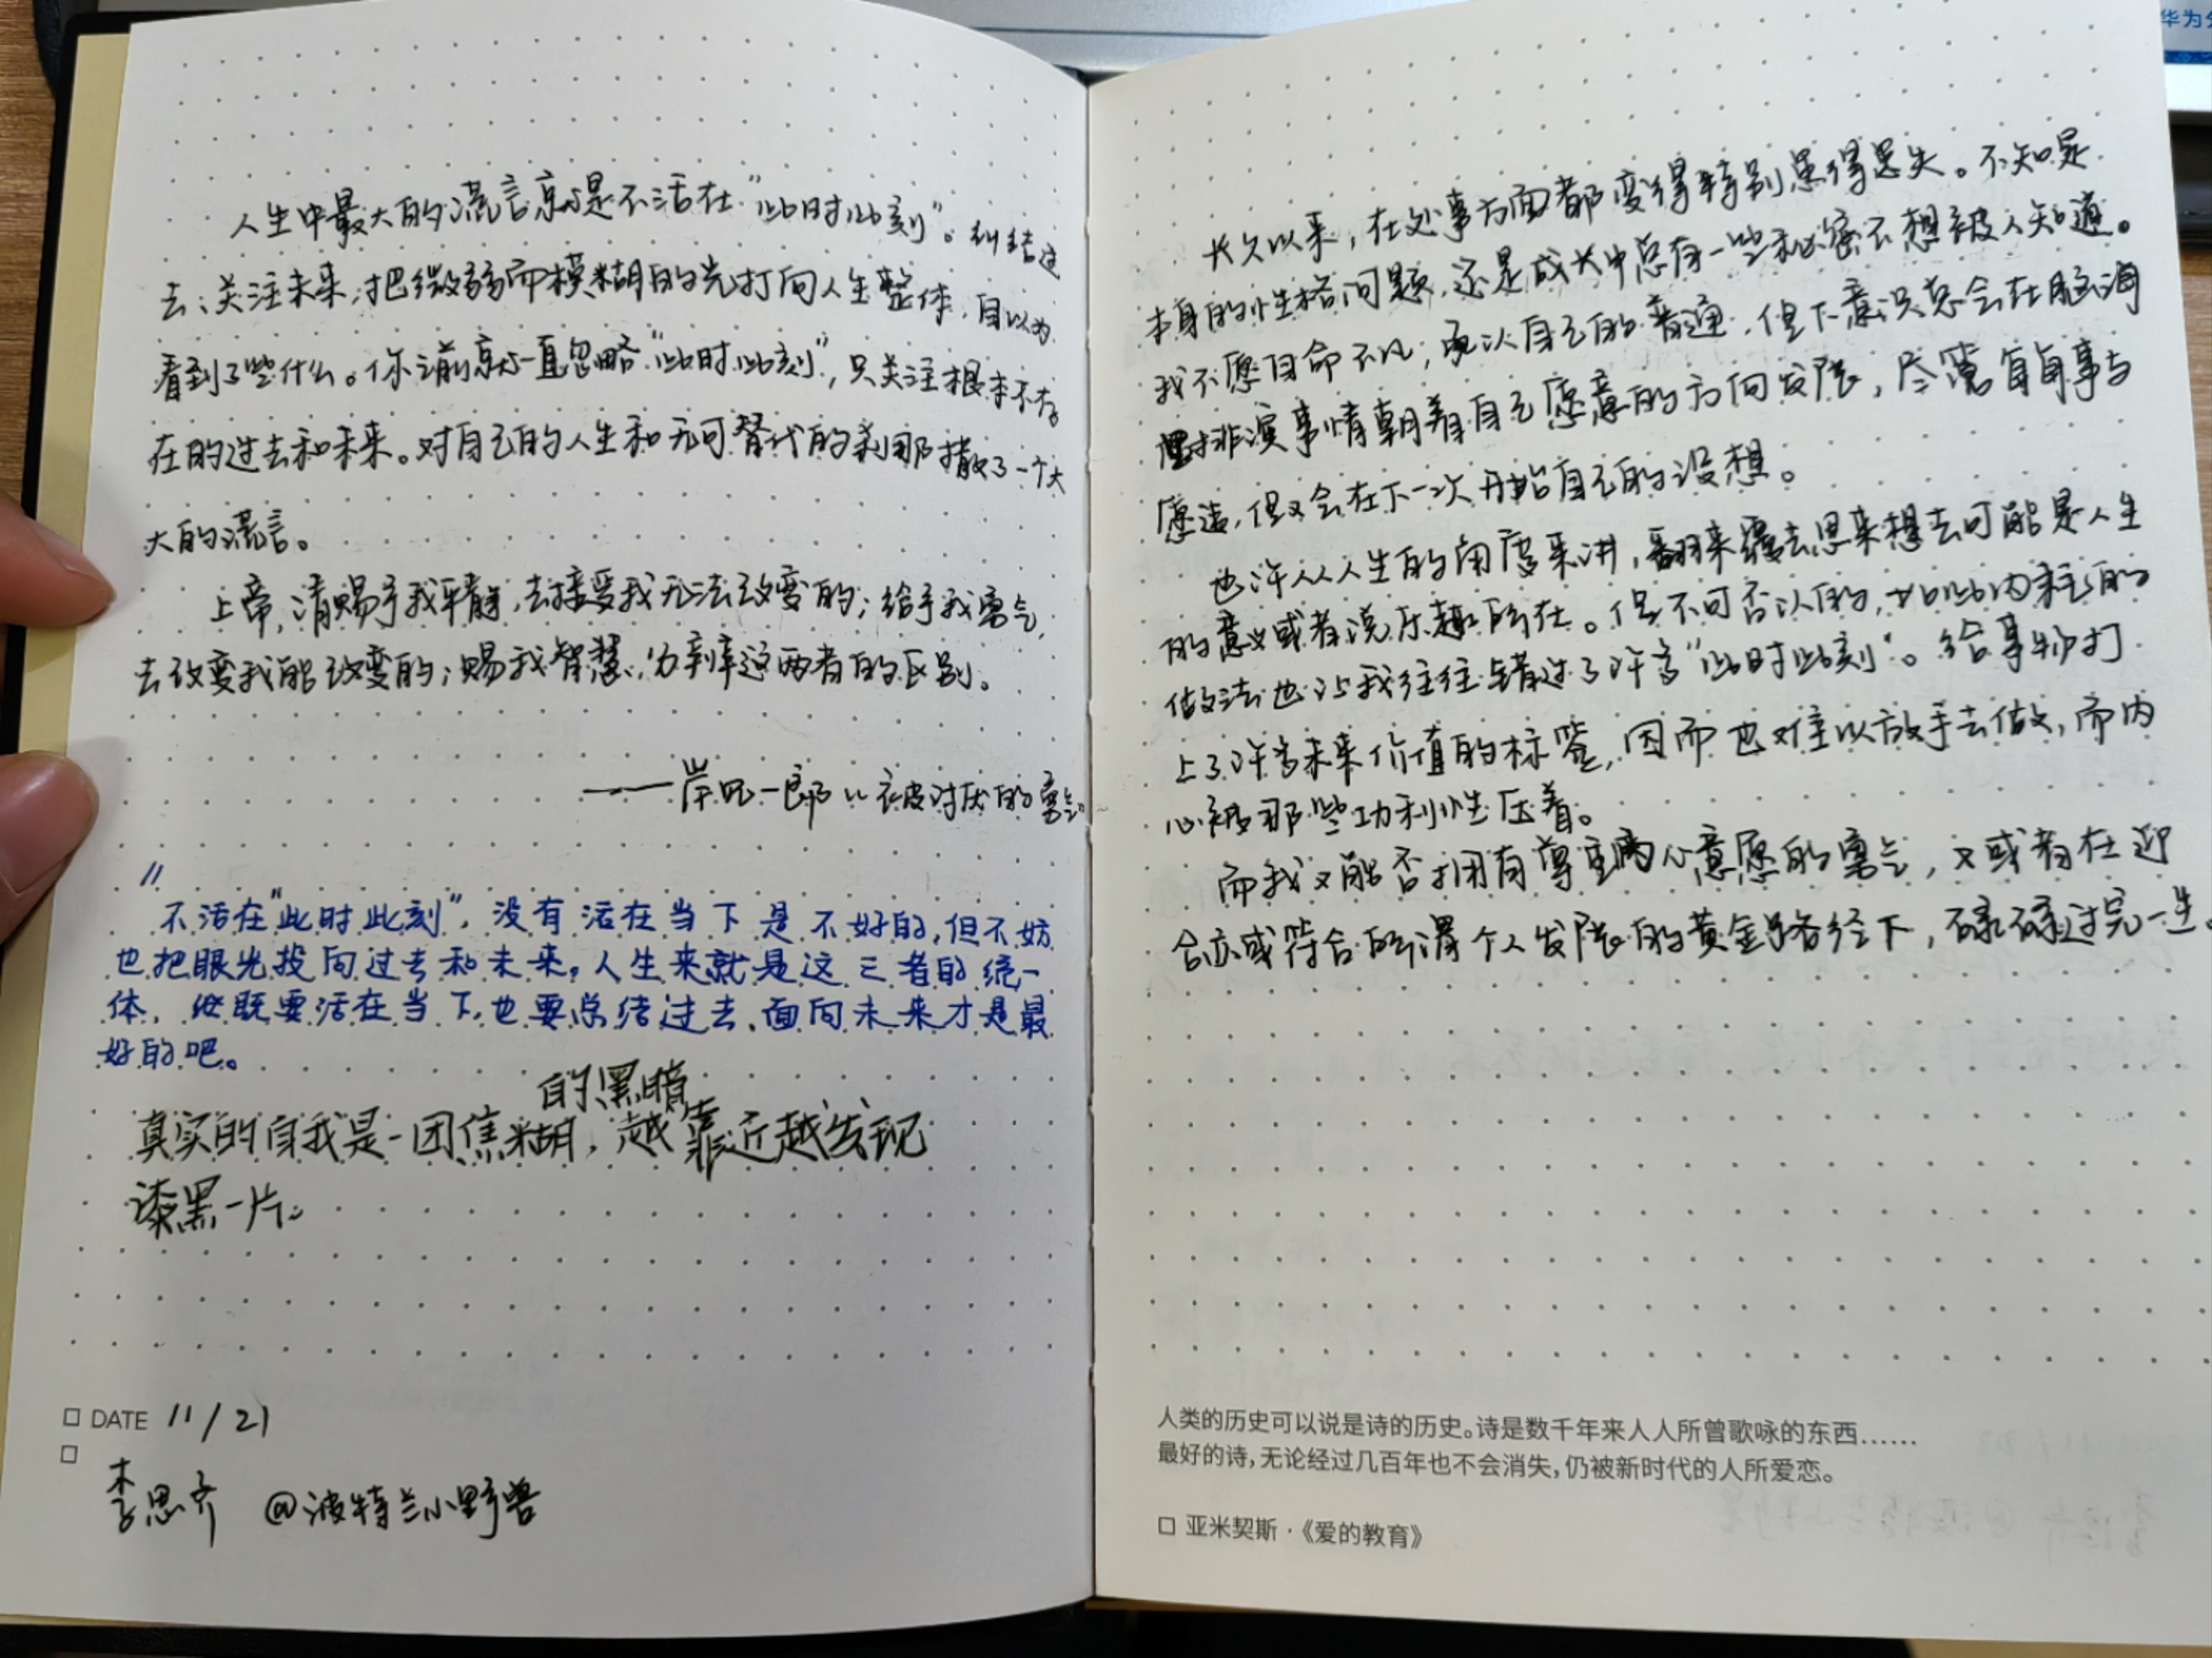 华为
人生中最大的谎言就是不活在“此时此刻”。纠结过
去、关注未来,把微弱而模糊的光打向人生整体,自以为
看到了些什么。你之前就一直忽略“此时此刻”,只关注根本不存
在的过去和未来。对自己的人生和无可替代的刹那撒了一个大
大的谎言。
上帝,请赐予我平静,去接受我无法改变的;给予我勇气,
去改变我能改变的;赐我智慧,分辨这两者的区别。
——岸见一郎《被讨厌的勇气》
"
不活在“此时此刻”,没有活在当下是不好的,但不妨
也把眼光投向过去和未来。人生来就是这三者的统一
体,既要活在当下,也要总结过去、面向未来才是最
好的吧。
的黑暗
真实的自我是一团焦糊,越靠近越发现
漆黑一片。
DATE 11/21
李思齐 @波特兰小野兽
长久以来,在处事方面都变得特别患得患失。不知是
本身的性格问题,还是成长中总有一些秘密不想被人知道。
我不愿自命不凡,更认自己的普通,但下意识总会在脑海
里排演事情朝着自己愿意的方向发展,尽管每每事与
愿违,但又会在下一次开始自己的设想。
也许从人生的角度来讲,翻来覆去思来想去可能是人生
的意义或者说乐趣所在。但不可否认的,如此内耗的
做法也让我往往错过了许多“此时此刻”。给事物打
上了许多未来价值的标签,因而也难以放手去做,而内
心被那些功利性压着。
而我又能否拥有尊重内心意愿的勇气,又或者在迎
合亦或符合所谓个人发展的黄金路径下,碌碌过完一生。
人类的历史可以说是诗的历史。诗是数千年来人人所曾歌咏的东西……
最好的诗,无论经过几百年也不会消失,仍被新时代的人所爱恋。
亚米契斯·《爱的教育》